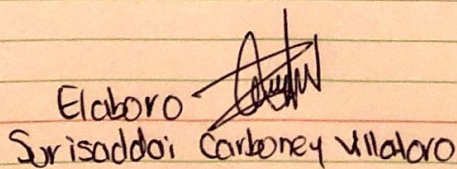 Elaboro
Surisaddai Carboney Villatoro